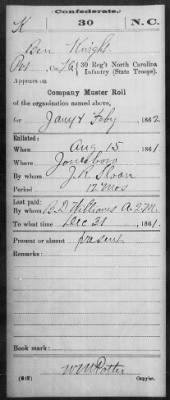 Confederate.
K 30 N.C.
Ben Knight
Pvt Co. K, 30 Reg't North Carolina
Infantry (State Troops).
Appears on
Company Muster Roll
of the organization named above,
for Jany & Feby, 1862
Enlisted:
When Aug 15, 1861
Where Jonesboro
By whom J. R. Sloan
Period 12 Mos
Last paid:
By whom B. D. Williams A.Q.M.
To what time Dec 31, 1861.
Present or absent present
Remarks:
Book mark:
W W Potter
(642) Copyist.